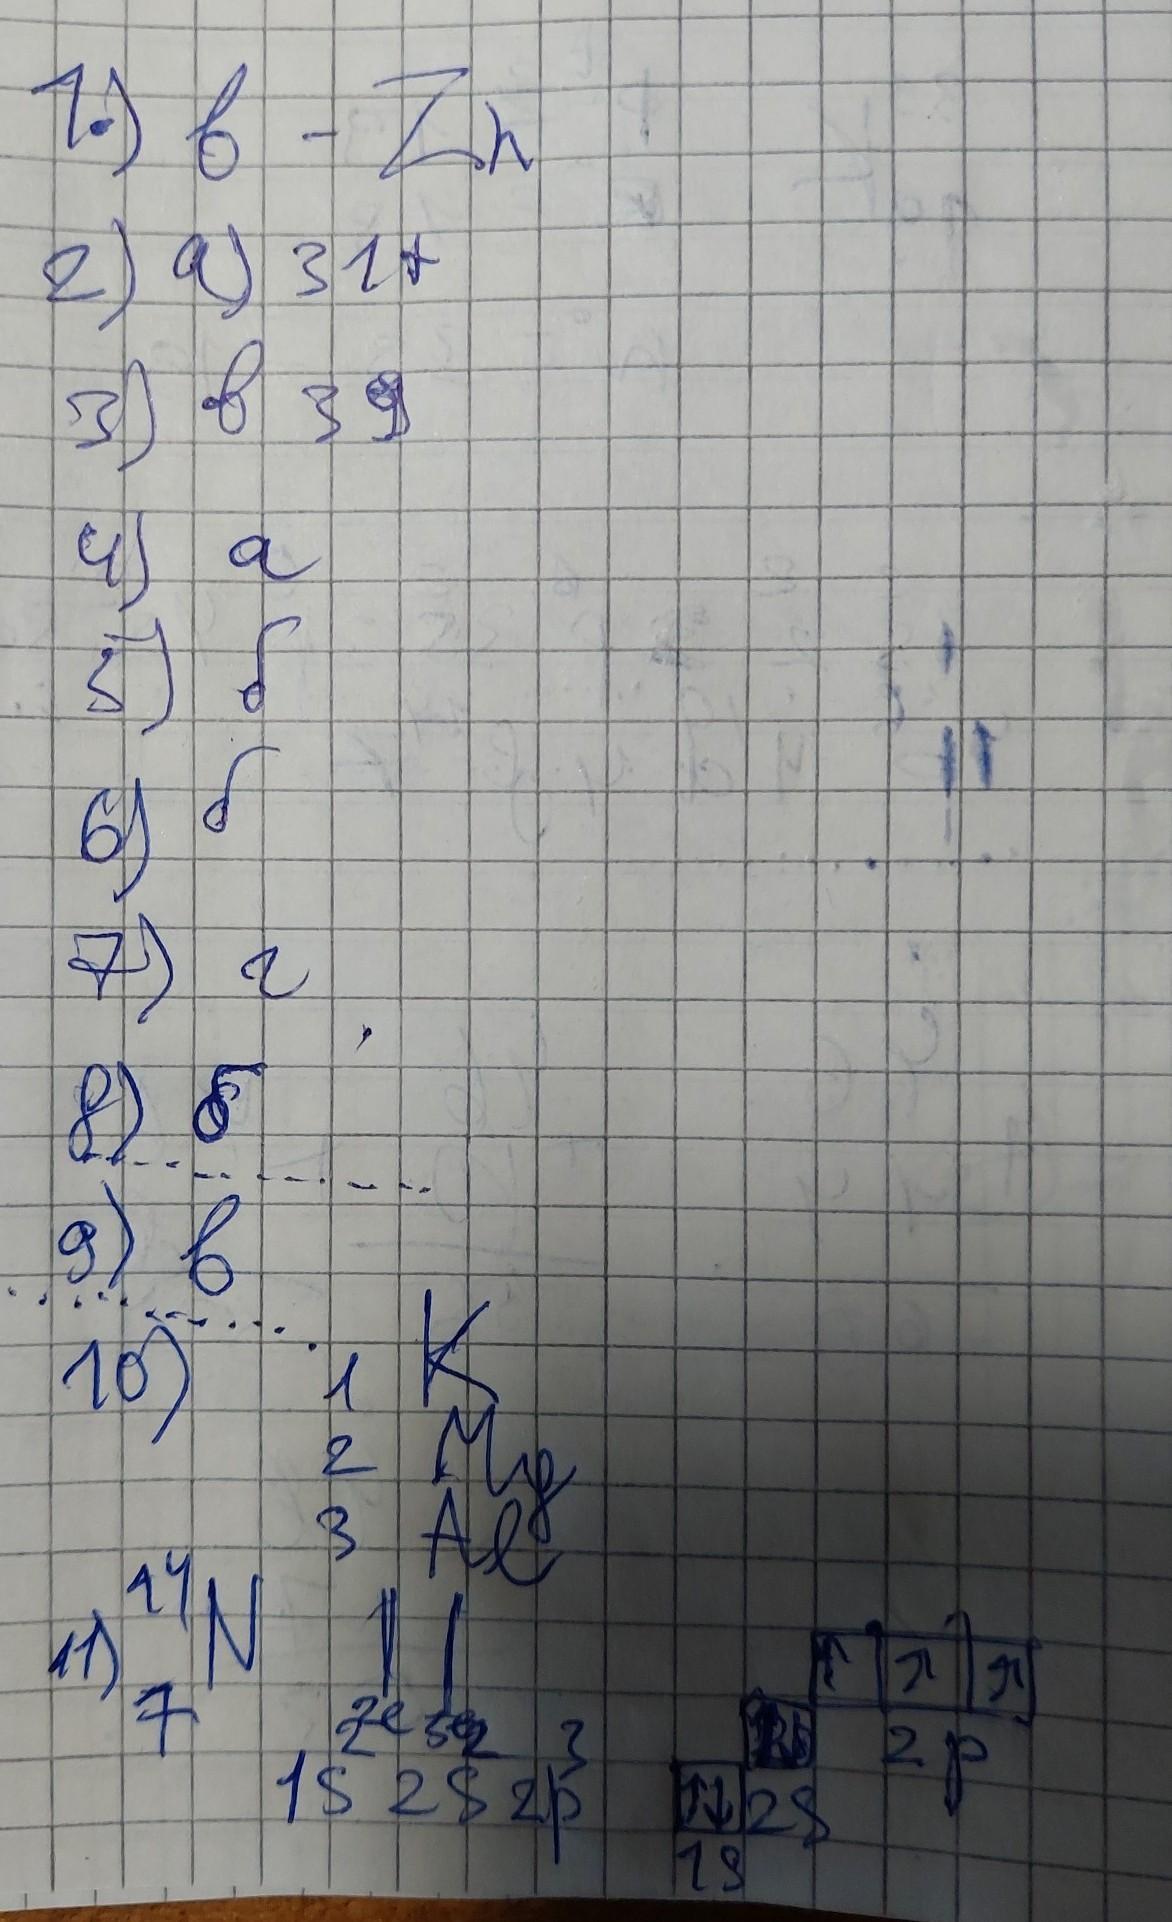 1.) в - Zn
2) а) 31+
3) в 39
4) а
5) б
6) б
7) г
8) б
9) в
10) 1 K
2 Mg
3 Al
11) 14 7 N
2e 5e
1s 2s2 2p3
↑ ↑ ↑
2p
↑↓ 2s
1s